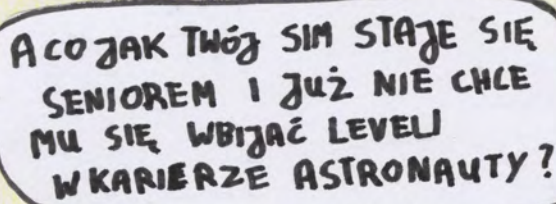 A CO JAK TWÓJ SIM STAJE SIĘ
SENIOREM I JUŻ NIE CHCE
MU SIĘ WBIJAĆ LEVELI
W KARIERZE ASTRONAUTY?